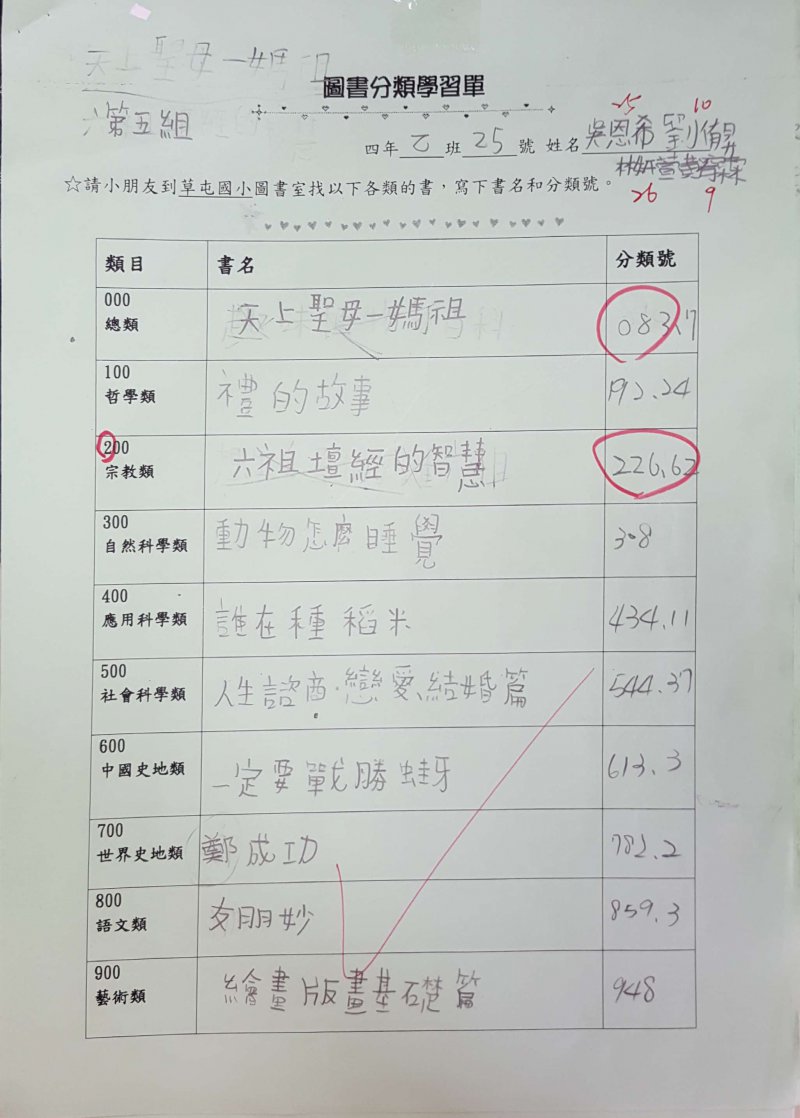 天上聖母一媽祖
圖書分類學習單
第五組
25 10
四年乙班25號 姓名吳恩希 劉
林妍萱 黃 霖
26 9
☆請小朋友到草屯國小圖書室找以下各類的書,寫下書名和分類號。
類目 書名 分類號
000 總類 天上聖母一媽祖 083.7
100 哲學類 禮的故事 192.24
200 宗教類 六祖壇經的智慧 226.62
300 自然科學類 動物怎麼睡覺 308
400 應用科學類 誰在種稻米 434.11
500 社會科學類 人生諮商·戀愛、結婚篇 544.37
600 中國史地類 一定要戰勝蛀牙 613.3
700 世界史地類 鄭成功 782.2
800 語文類 朋妙 859.3
900 藝術類 繪畫版畫基礎篇 948